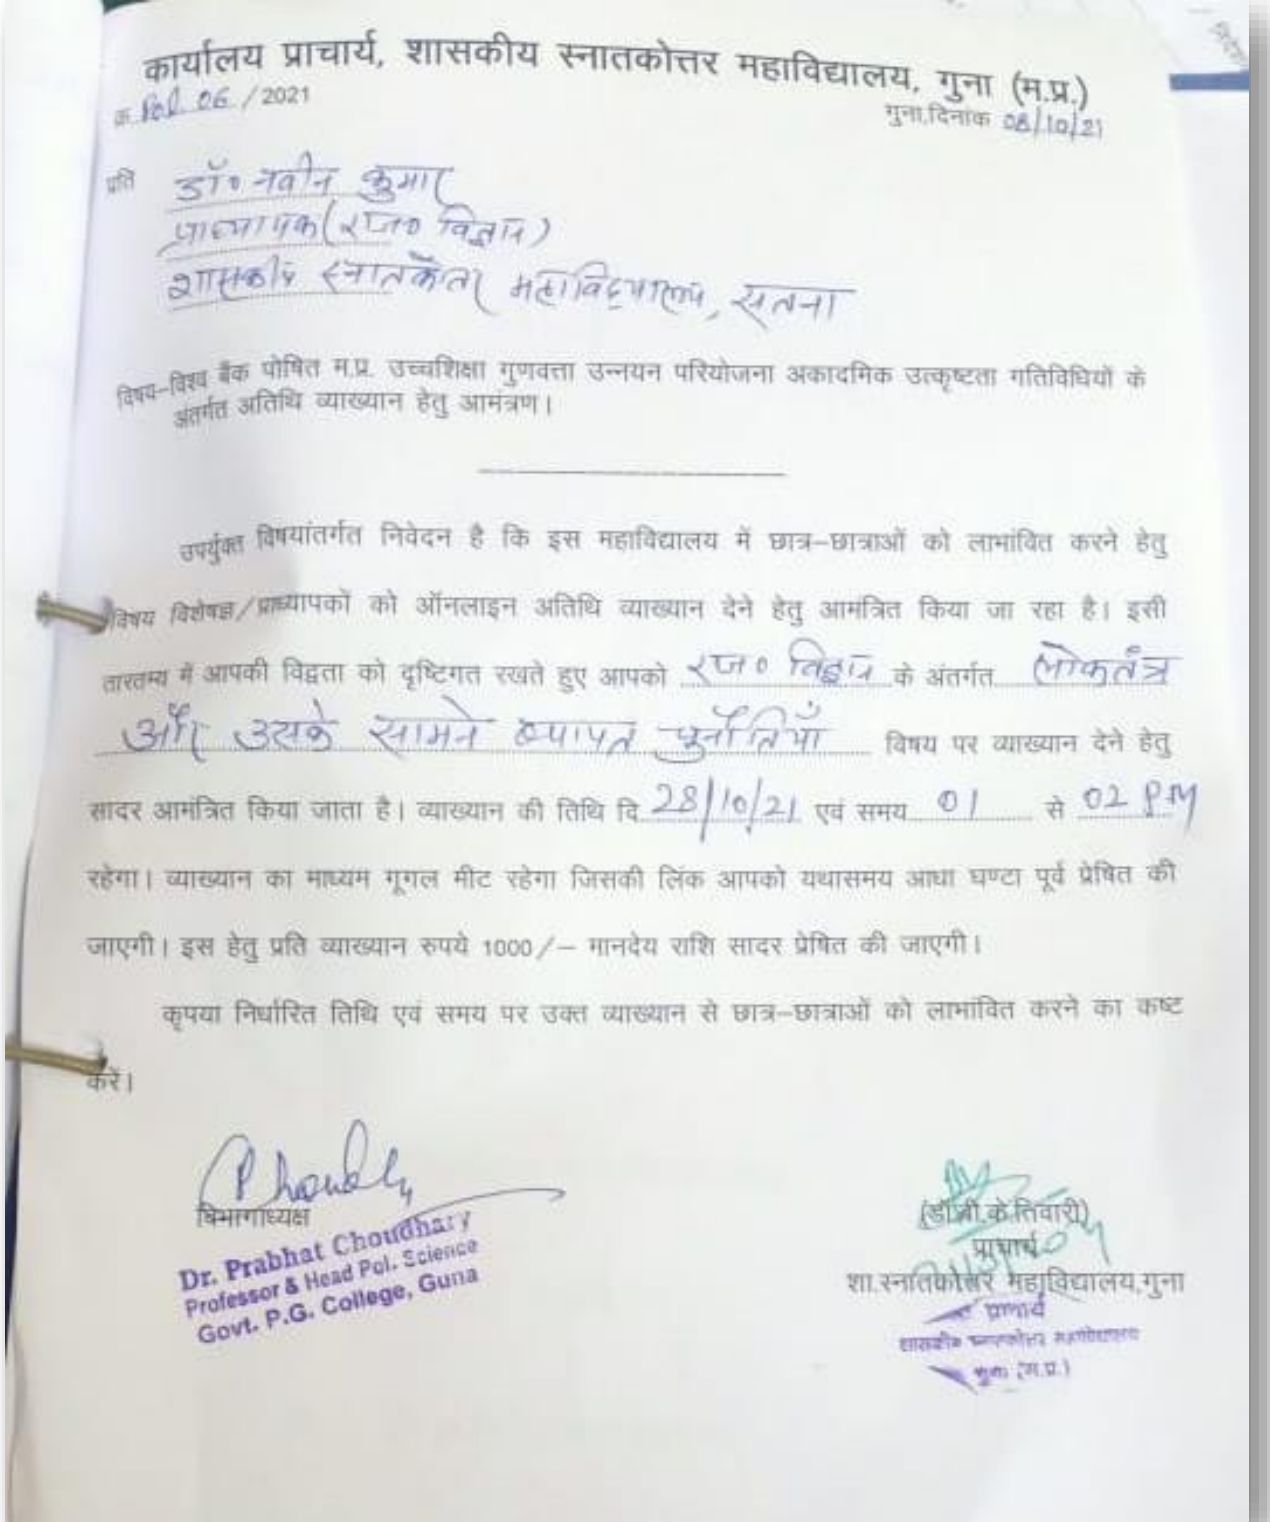 कार्यालय प्राचार्य, शासकीय स्नातकोत्तर महाविद्यालय, गुना (म.प्र.)
क Pol. 06 / 2021
गुना,दिनांक 08/10/21
प्रति
डॉ० नवीन कुमार
प्राध्यापक (राज० विज्ञान)
शासकीय स्नातकोत्तर महाविद्यालय, सतना
विषय-विश्व बैंक पोषित म.प्र. उच्चशिक्षा गुणवत्ता उन्नयन परियोजना अकादमिक उत्कृष्टता गतिविधियों के
अंतर्गत अतिथि व्याख्यान हेतु आमंत्रण।
उपर्युक्त विषयांतर्गत निवेदन है कि इस महाविद्यालय में छात्र-छात्राओं को लाभांवित करने हेतु
विषय विशेषज्ञ/प्राध्यापकों को ऑनलाइन अतिथि व्याख्यान देने हेतु आमंत्रित किया जा रहा है। इसी
तारतम्य में आपकी विद्वता को दृष्टिगत रखते हुए आपको राज० विज्ञान के अंतर्गत लोकतंत्र
और उसके सामने व्यापत चुनौतियाँ विषय पर व्याख्यान देने हेतु
सादर आमंत्रित किया जाता है। व्याख्यान की तिथि दि 28/10/21 एवं समय 01 से 02 PM
रहेगा। व्याख्यान का माध्यम गूगल मीट रहेगा जिसकी लिंक आपको यथासमय आधा घण्टा पूर्व प्रेषित की
जाएगी। इस हेतु प्रति व्याख्यान रुपये 1000/- मानदेय राशि सादर प्रेषित की जाएगी।
कृपया निर्धारित तिथि एवं समय पर उक्त व्याख्यान से छात्र-छात्राओं को लाभांवित करने का कष्ट
करें।
विभागाध्यक्ष
Dr. Prabhat Choudhary
Professor & Head Pol. Science
Govt. P.G. College, Guna
(डॉ.बी.के.तिवारी)
प्राचार्य
शा.स्नातकोत्तर महाविद्यालय,गुना
प्राचार्य
शासकीय स्नातकोत्तर महाविद्यालय
गुना (म.प्र.)